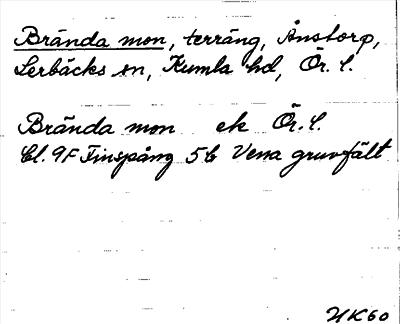 Brända mon, terräng, Ånstorp,
Lerbäcks sn, Kumla hd, Ör. l.
Brända mon ek Ör. l.
Bl. 9F Finspång 5b Vena gruvfält
HK60